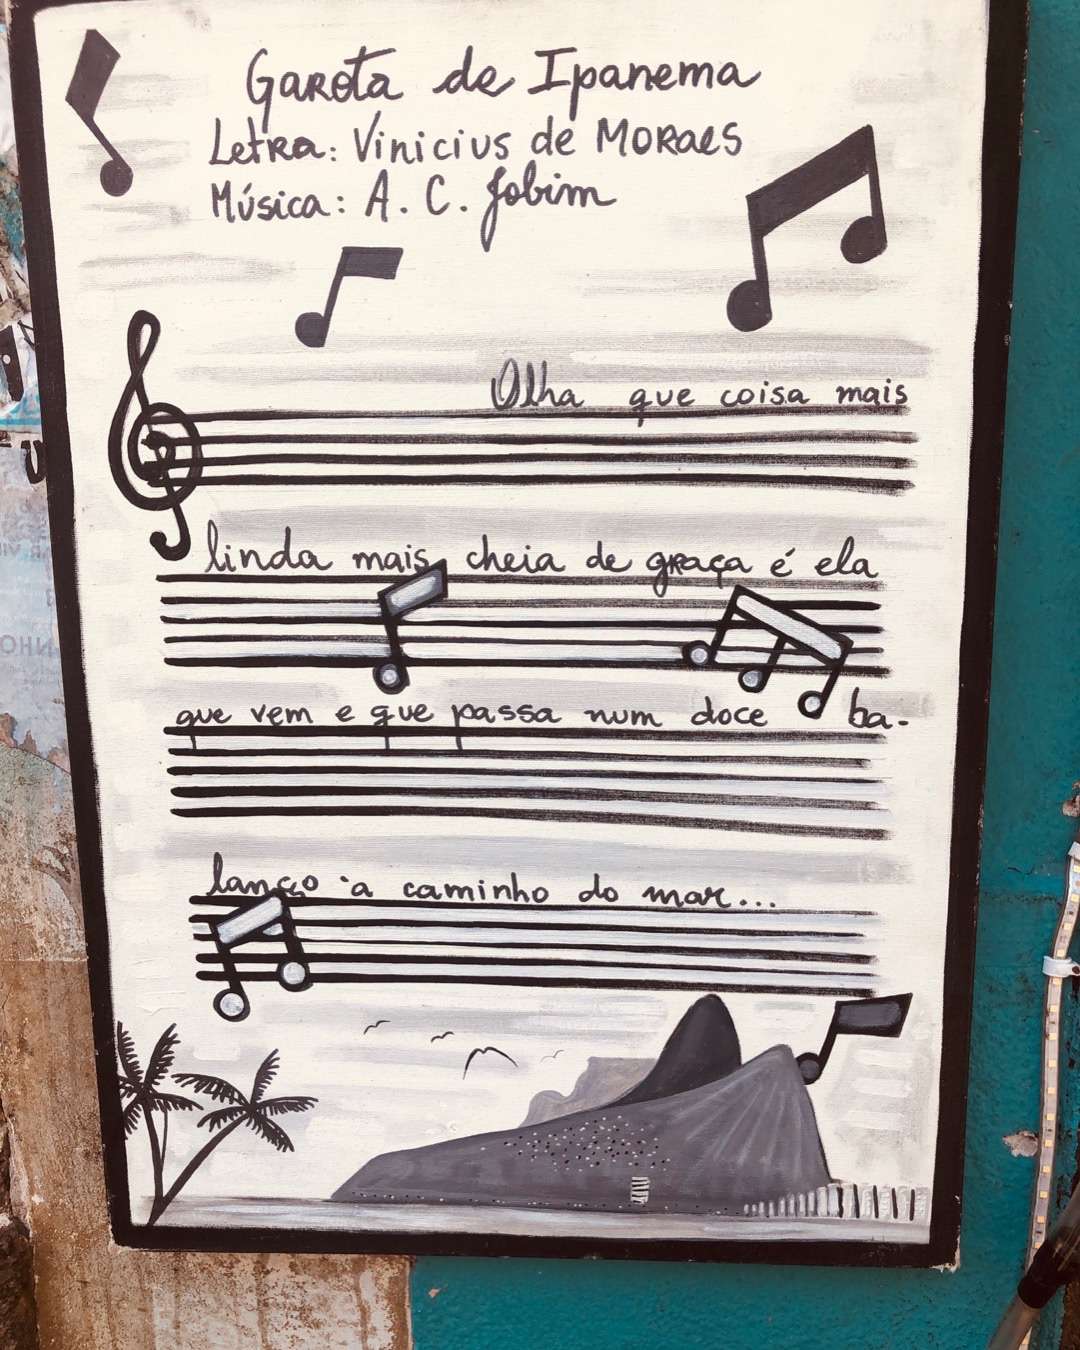 Garota de Ipanema
Letra: Vinicius de Moraes
Música: A. C. Jobim
Olha que coisa mais
linda mais cheia de graça é ela
que vem e que passa num doce ba-
lanço a caminho do mar...